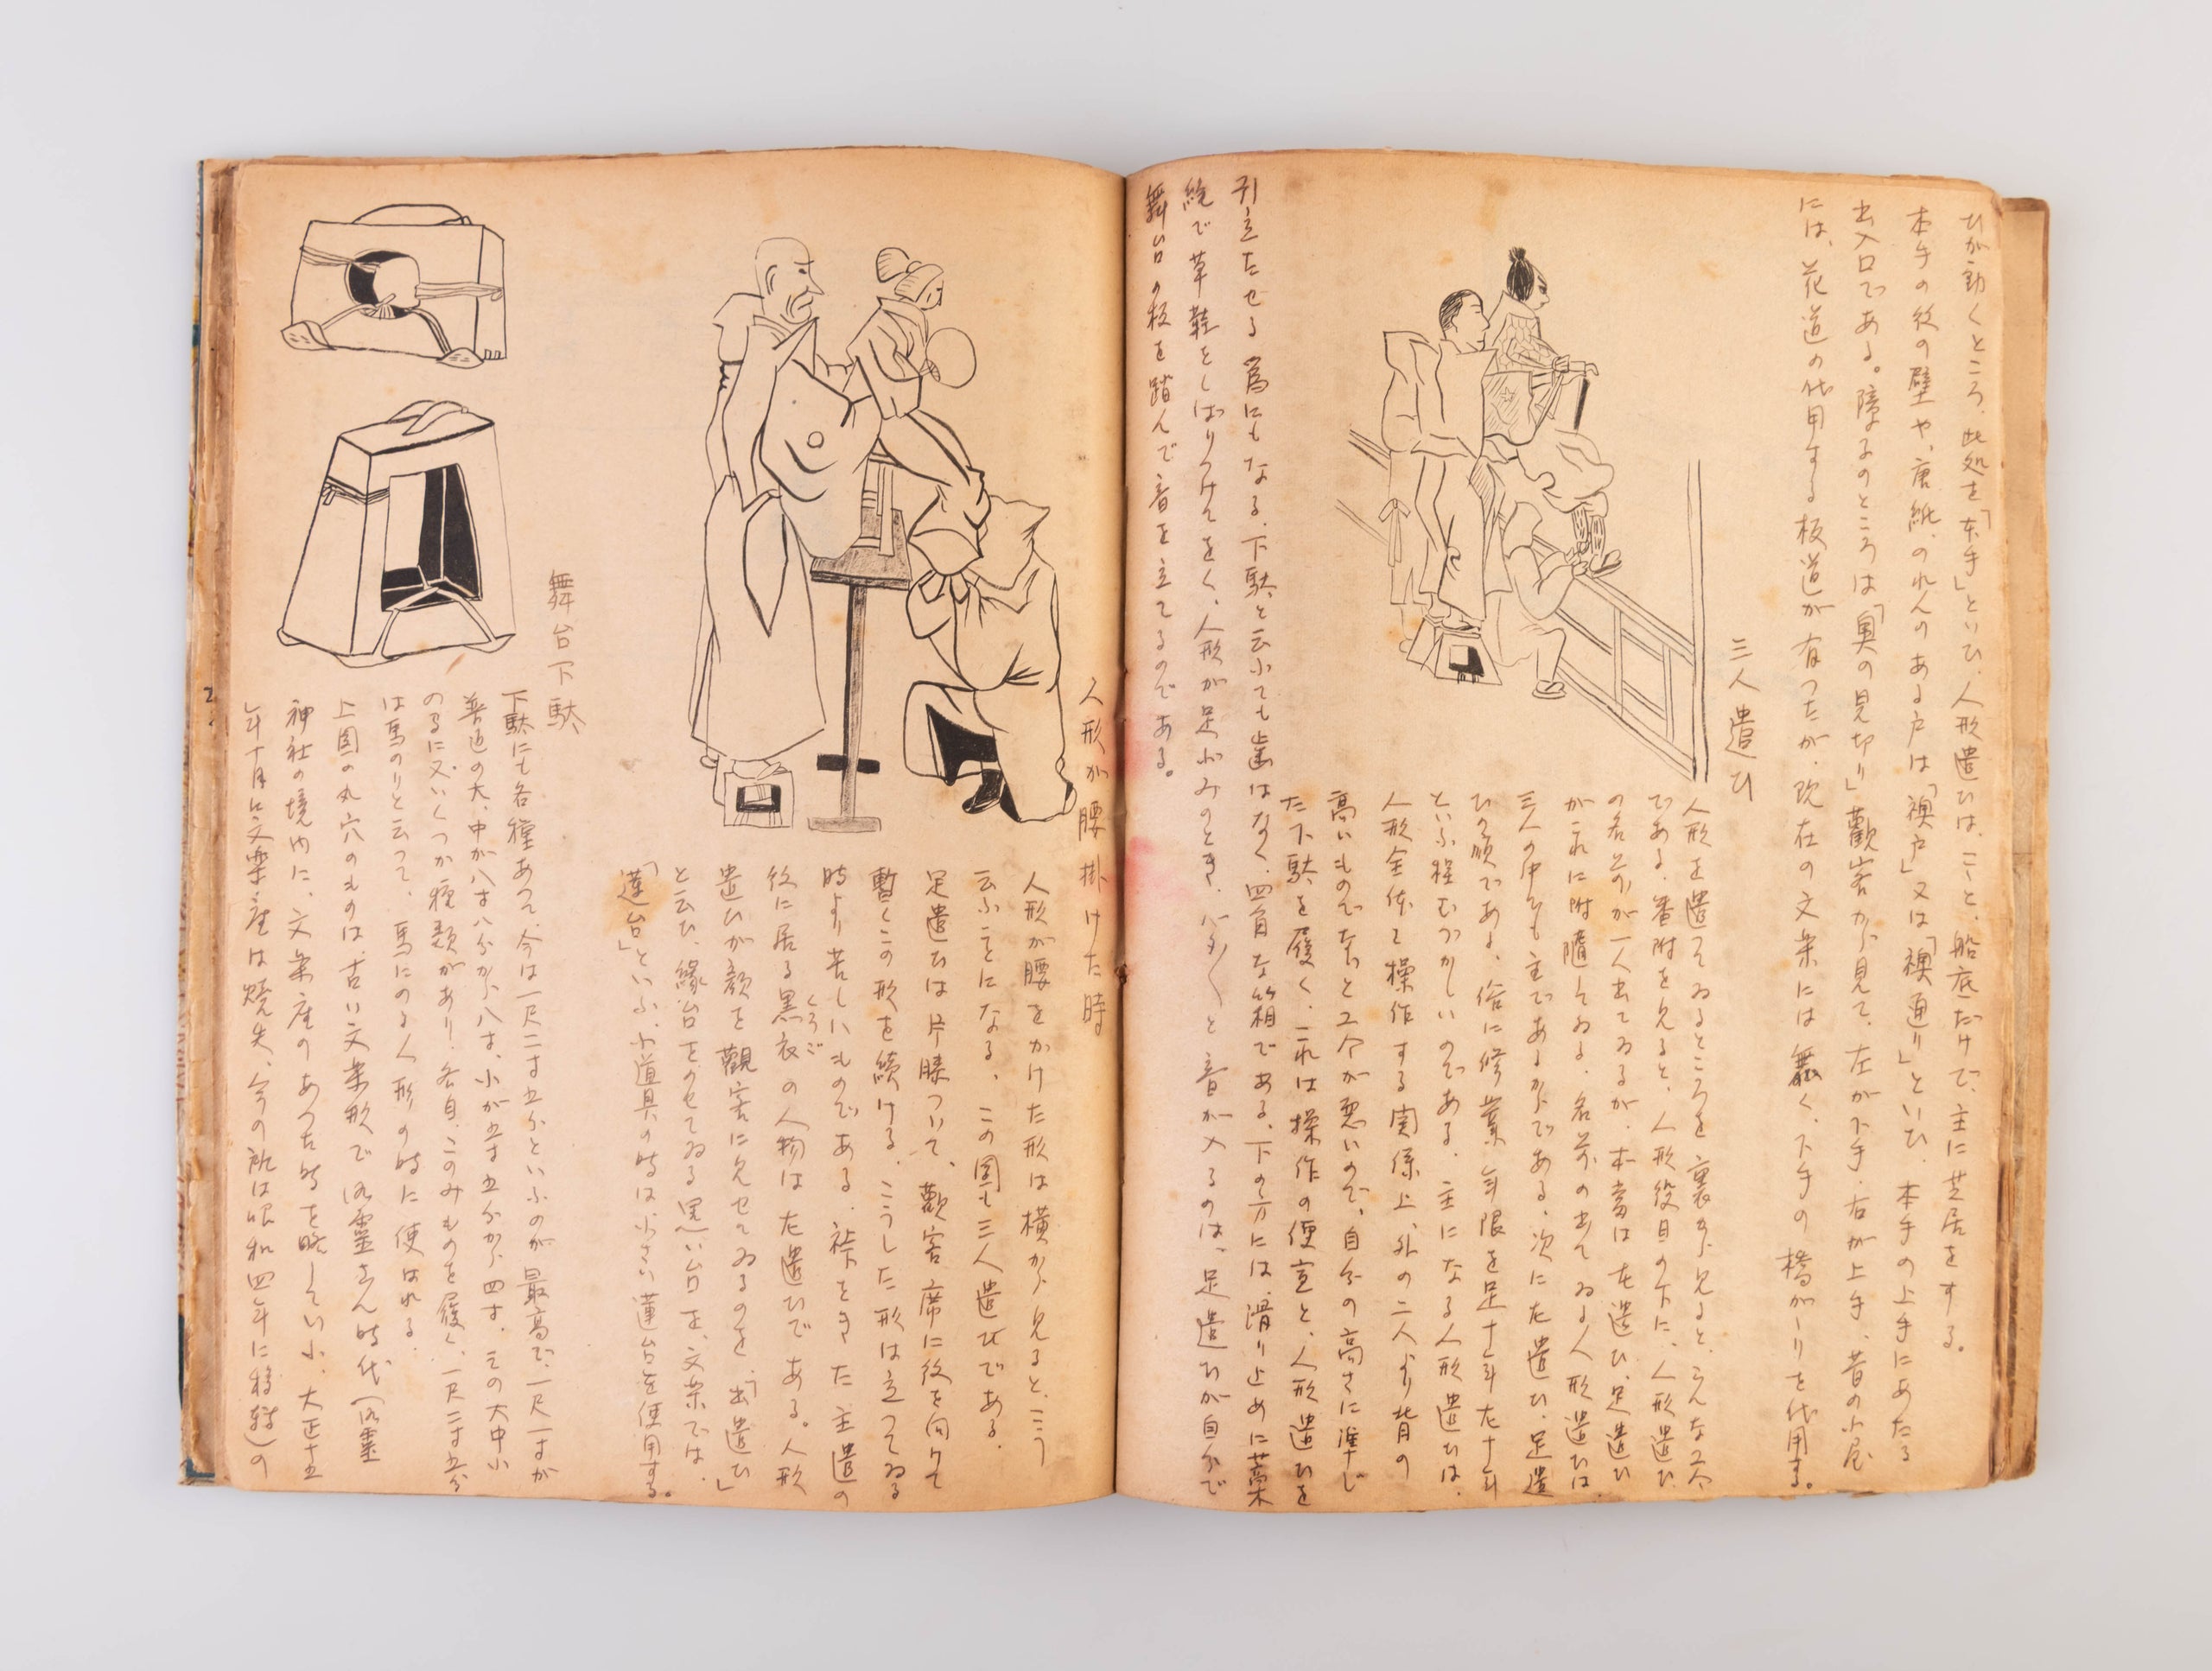 ひが動くところ、此処を「本手」といひ、人形遣ひは、こゝと、船底だけで、主に芝居をする。
本手の後の壁や、唐紙、のれんのある戸は「襖戸」又は「襖通り」といひ、本手の上手にあたる
出入口である。障るのところは「奥の見切り」観客から見て、左が下手、右が上手、昔の小屋
には、花道の代用する板道が有つたが、現在の文楽には無く、下手の橋がゝりを代用する。
三人遣ひ
人形を遣つてゐるところを裏から見ると、こんな工合
である。番附を見ると、人形役目の下に、人形遣ひ
の名前が一人出てゐるが、本当は左遣ひ、足遣ひ
がこれに附随してゐる、名前の出てゐる人形遣ひは
三人の中でも主であるからである、次に左遣ひ、足遣
ひの順である、俗に修業年限を足十年左十年
といふ程むつかしいのである、主になる人形遣ひは、
人形全体を操作する関係上、外の二人より背の
高いものでないと工合が悪いので、自分の高さに準じ
た下駄を履く、これは操作の便宜と、人形遣ひを
引立たせる為にもなる、下駄と云ふても歯はなく、四角な箱である、下の方には、滑り止めに藁
縄で草鞋をしばりつけてをく、人形が足ふみのとき、バタ〱と音が入るのは、足遣ひが自分で
舞台の板を踏んで音を立てるのである。
人形が腰掛けた時
人形が腰をかけた形は横から見ると、こう
云ふことになる、この図も三人遣ひである、
足遣ひは片膝ついて、観客席に後を向けて
暫くこの形を続ける、こうした形は立つてゐる
時より苦しいものである、裃をきた主遣の
後に居る黒衣の人物は左遣ひである。人形
くろご
遣ひが顔を観客に見せてゐるのを、「出遣ひ」
と云ひ、縁台をのせてゐる黒い台を、文楽では、
「蓮台」といふ、小道具の時は小さい蓮台を使用する。
舞台下駄
下駄にも各種あつて、今は一尺二寸五分といふのが最高で、一尺一寸が
普通の大、中が八寸八分から八寸、小が五寸五分から四寸、その大中小
のるに又いくつか種類があり、各自、このみものを履く、一尺二寸五分
は馬のりと云つて、馬にのる人形の時に使はれる、
上図の丸穴のものは、古い文楽形で、御霊さん時代(御霊
神社の境内に、文楽座のあつた時を略していふ、大正十五
年十月に文楽座は焼失、今の所は昭和四年に移転)の